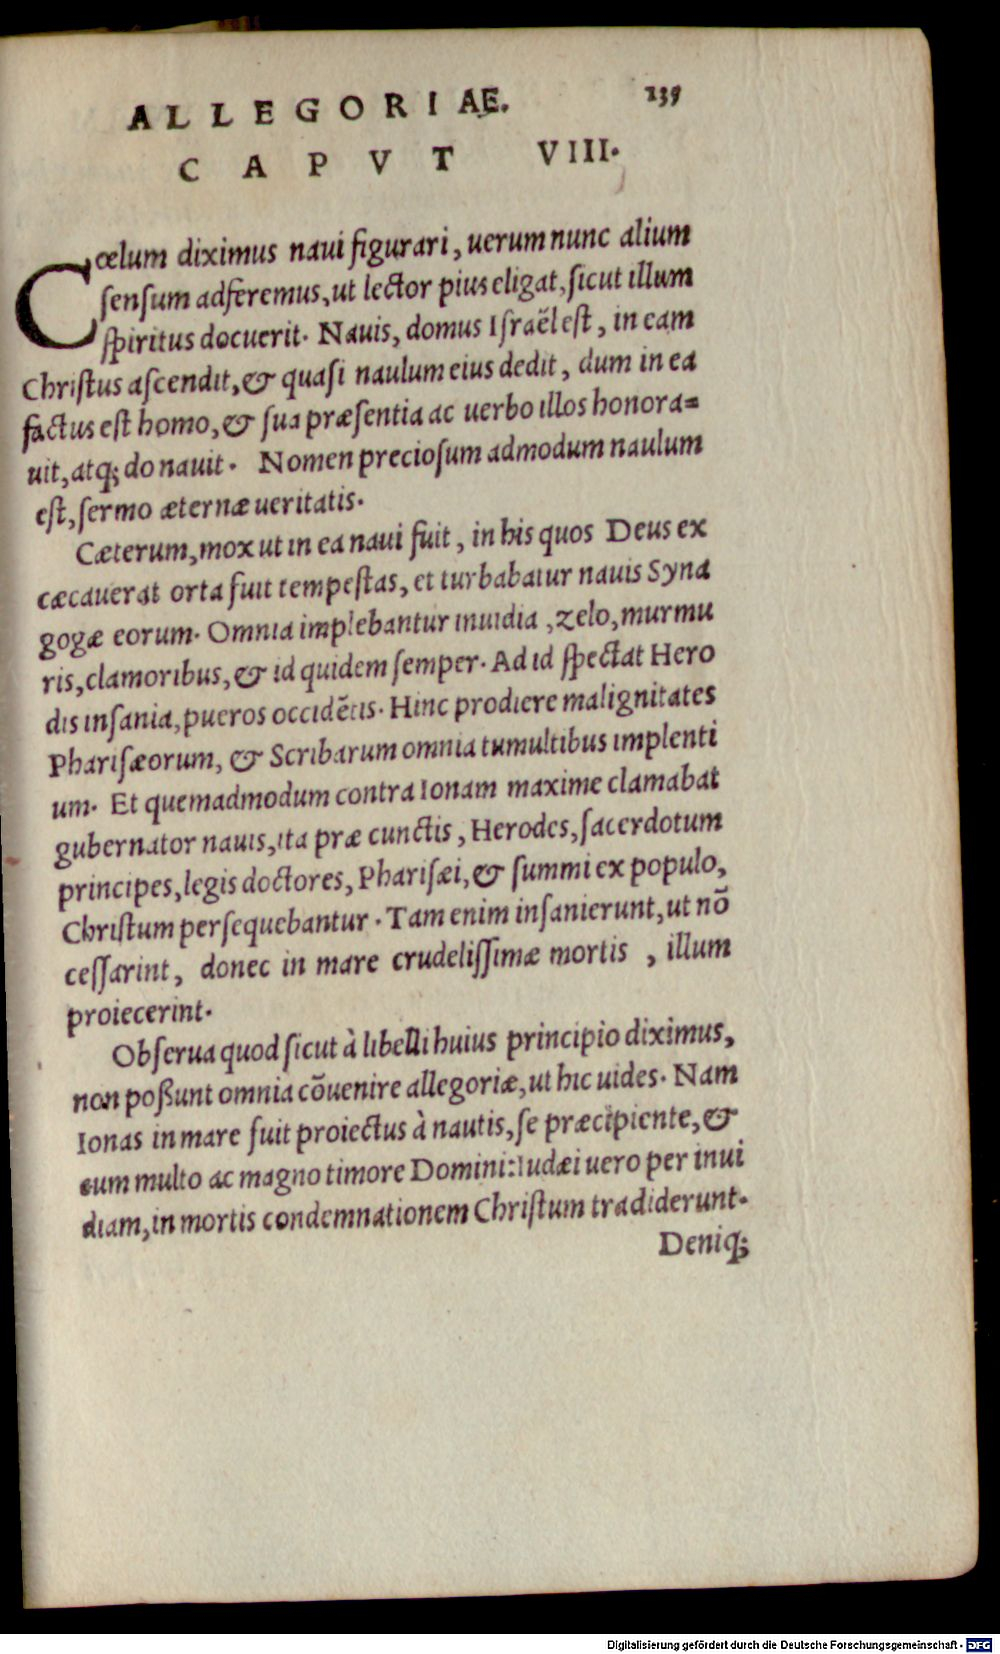 ALLEGORIAE. 139
CAPVT VIII.
Cœlum diximus naui figurari, uerum nunc alium
ſenſum adferemus, ut lector pius eligat, ſicut illum
ſpiritus docuerit. Nauis, domus Iſraël eſt, in eam
Chriſtus aſcendit, & quaſi naulum eius dedit, dum in ea
factus eſt homo, & ſua præſentia ac uerbo illos honora=
uit, atq; donauit. Nomen precioſum admodum naulum
eſt, ſermo æternæ ueritatis.
Cæterum, mox ut in ea naui fuit, in his quos Deus ex
cæcauerat orta fuit tempeſtas, et turbabatur nauis Syna
gogæ eorum. Omnia implebantur inuidia, zelo, murmu
ris, clamoribus, & id quidem ſemper. Ad id ſpectat Hero
dis inſania, pueros occidẽtis. Hinc prodiere malignitates
Phariſæorum, & Scribarum omnia tumultibus implenti
um. Et quemadmodum contra Ionam maxime clamabat
gubernator nauis, ita præ cunctis, Herodes, ſacerdotum
principes, legis doctores, Phariſæi, & ſummi ex populo,
Chriſtum perſequebantur. Tam enim inſanierunt, ut nõ
ceſſarint, donec in mare crudeliſſimæ mortis, illum
proiecerint.
Obſerua quod ſicut à libelli huius principio diximus,
non poßunt omnia cõuenire allegoriæ, ut hic uides. Nam
Ionas in mare fuit proiectus à nautis, ſe præcipiente, &
cum multo ac magno timore Domini: Iudæi uero per inui
diam, in mortis condemnationem Chriſtum tradiderunt.
Deniq;
Digitalisierung gefördert durch die Deutsche Forschungsgemeinschaft - DFG